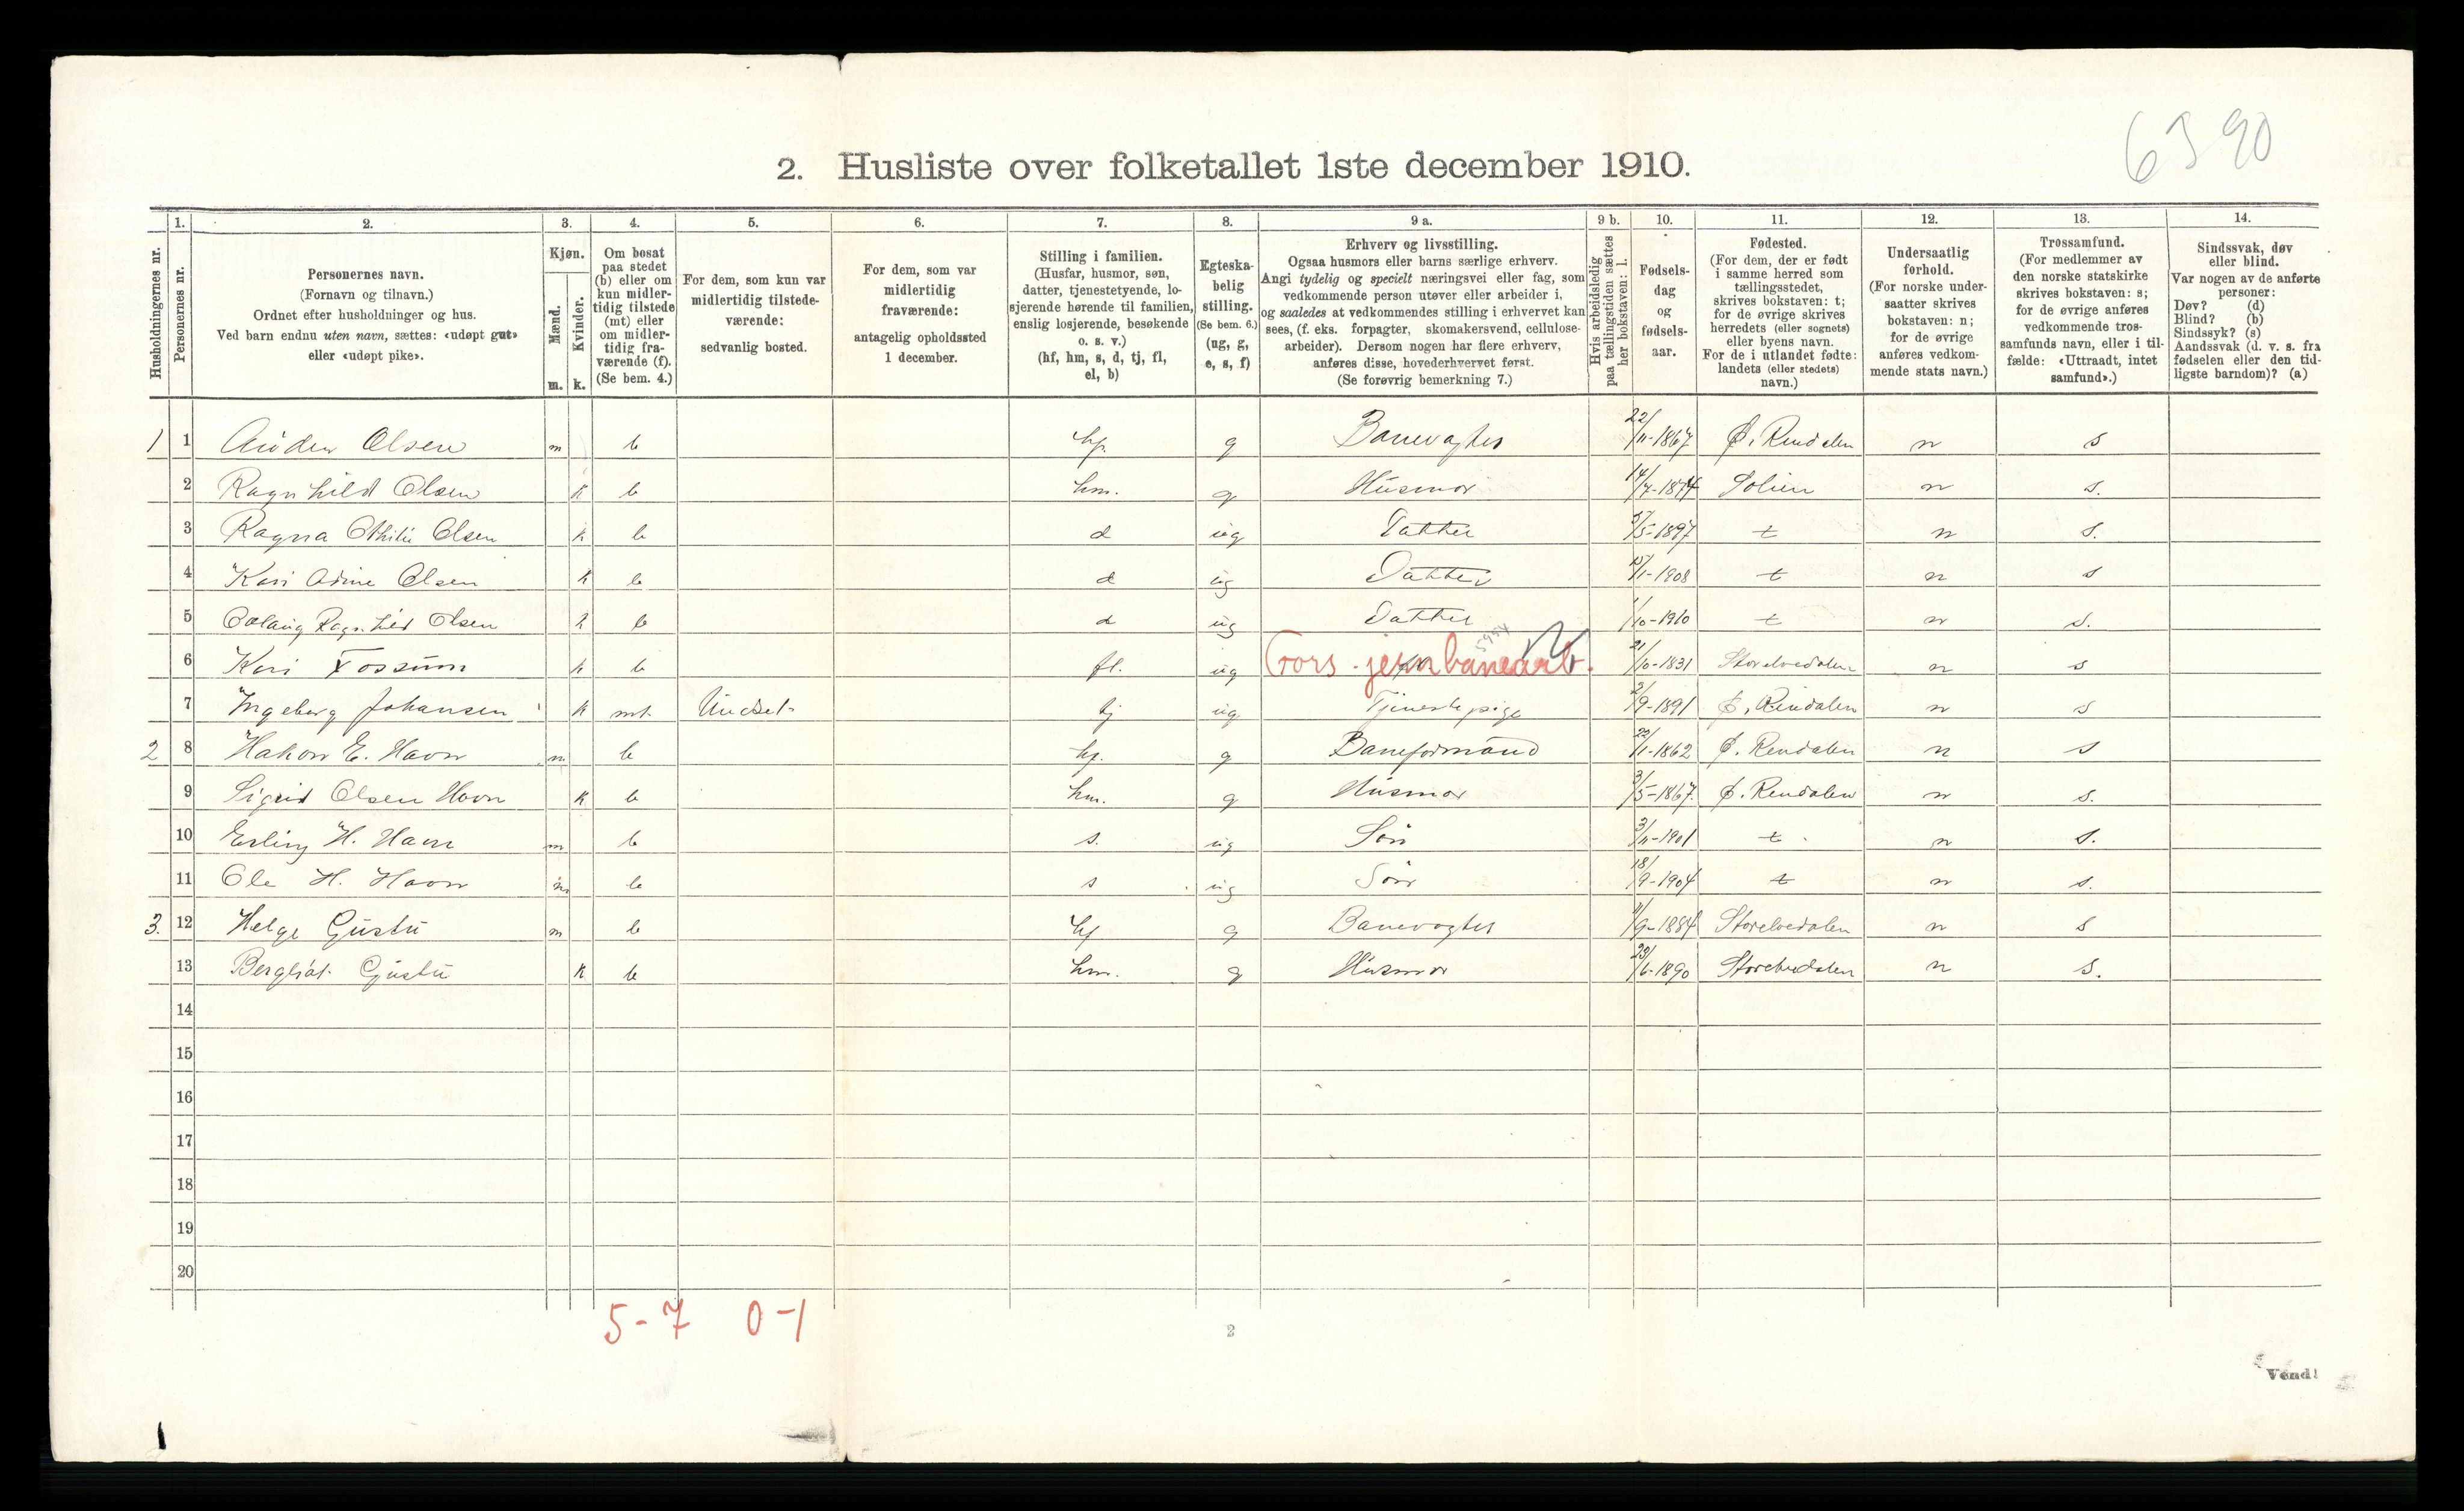 6390
2. Husliste over folketallet 1ste december 1910.
Husholdningernes nr.
1.
Personernes nr.
2.
Personernes navn.
(Fornavn og tilnavn.)
Ordnet efter husholdninger og hus.
Ved barn endnu uten navn, sættes: «udøpt gut»
eller «udøpt pike».
3.
Kjøn.
Mænd.
m.
Kvinder.
k.
4.
Om bosat
paa stedet
(b) eller om
kun midler-
tidig tilstede
(mt) eller
om midler-
tidig fra-
værende (f).
(Se bem. 4.)
5.
For dem, som kun var
midlertidig tilstede-
værende:
sedvanlig bosted.
6.
For dem, som var
midlertidig
fraværende:
antagelig opholdssted
1 december.
7.
Stilling i familien.
(Husfar, husmor, søn,
datter, tjenestetyende, lo-
sjerende hørende til familien,
enslig losjerende, besøkende
o. s. v.)
(hf, hm, s, d, tj, fl,
el, b)
8.
Egteska-
belig
stilling.
(Se bem. 6.)
(ug, g,
e, s, f)
9 a.
Erhverv og livsstilling.
Ogsaa husmors eller barns særlige erhverv.
Angi tydelig og specielt næringsvei eller fag, som
vedkommende person utøver eller arbeider i,
og saaledes at vedkommendes stilling i erhvervet kan
sees, (f. eks. forpagter, skomakersvend, cellulose-
arbeider). Dersom nogen har flere erhverv,
anføres disse, hovederhvervet først.
(Se forøvrig bemerkning 7.)
9 b.
Hvis arbeidsledig
paa tællingstiden sættes
her bokstaven: l.
10.
Fødsels-
dag
og
fødsels-
aar.
11.
Fødested.
(For dem, der er født
i samme herred som
tællingsstedet,
skrives bokstaven: t;
for de øvrige skrives
herredets (eller sognets)
eller byens navn.
For de i utlandet fødte:
landets (eller stedets)
navn.)
12.
Undersaatlig
forhold.
(For norske under-
saatter skrives
bokstaven: n;
for de øvrige
anføres vedkom-
mende stats navn.)
13.
Trossamfund.
(For medlemmer av
den norske statskirke
skrives bokstaven: s;
for de øvrige anføres
vedkommende tros-
samfunds navn, eller i til-
fælde: «Uttraadt, intet
samfund».)
14.
Sindssvak, døv
eller blind.
Var nogen av de anførte
personer:
Døv? (d)
Blind? (b)
Sindssyk? (s)
Aandssvak (d. v. s. fra
fødselen eller den tid-
ligste barndom)? (a)
1 1 Auden Olsen m b hf. g Banevogter 22/11-1867 Ø. Rendalen n s
2 Ragnhild Olsen k b hm. g Husmor 14/7-1874 Sollien n s.
3 Ragna Othilie Olsen k b d ug Datter 5/5-1897 t n s.
4 Kari Adine Olsen k b d ug Datter 15/1-1908 t n s
5 Oolaug Ragnhild Olsen k b d ug Datter 1/10-1910 t n s.
6 Kari Fossum k b fl. ug Fors. jernbanearb. 21/10-1831 Storelvedalen n s
7 Ingeborg Johansen k mt. Undset tj ug Tjenestepige 2/9-1891 Ø. Rendalen n s
2 8 Hakon E. Havn m b hf. g Baneformand 22/11-1862 Ø. Rendalen n s
9 Sigrid Olsen Havn k b hm. g Husmor 3/5-1867. Ø. Rendalen n s.
10 Erling H. Havn m b s. ug Sön 3/11-1901 t n s.
11 Ole H. Havn m b s ug Sön 18/9-1904 t n s.
3. 12 Helge Gustu m b hf g Banevogter 11/9-1884 Storelvedalen n s
13 Bergliot Gustu k b hm. g Husmor 29/6-1890 Storelvedalen n s.
14
15
16
17
18
19
20
5-7 0-1
2
Vend!